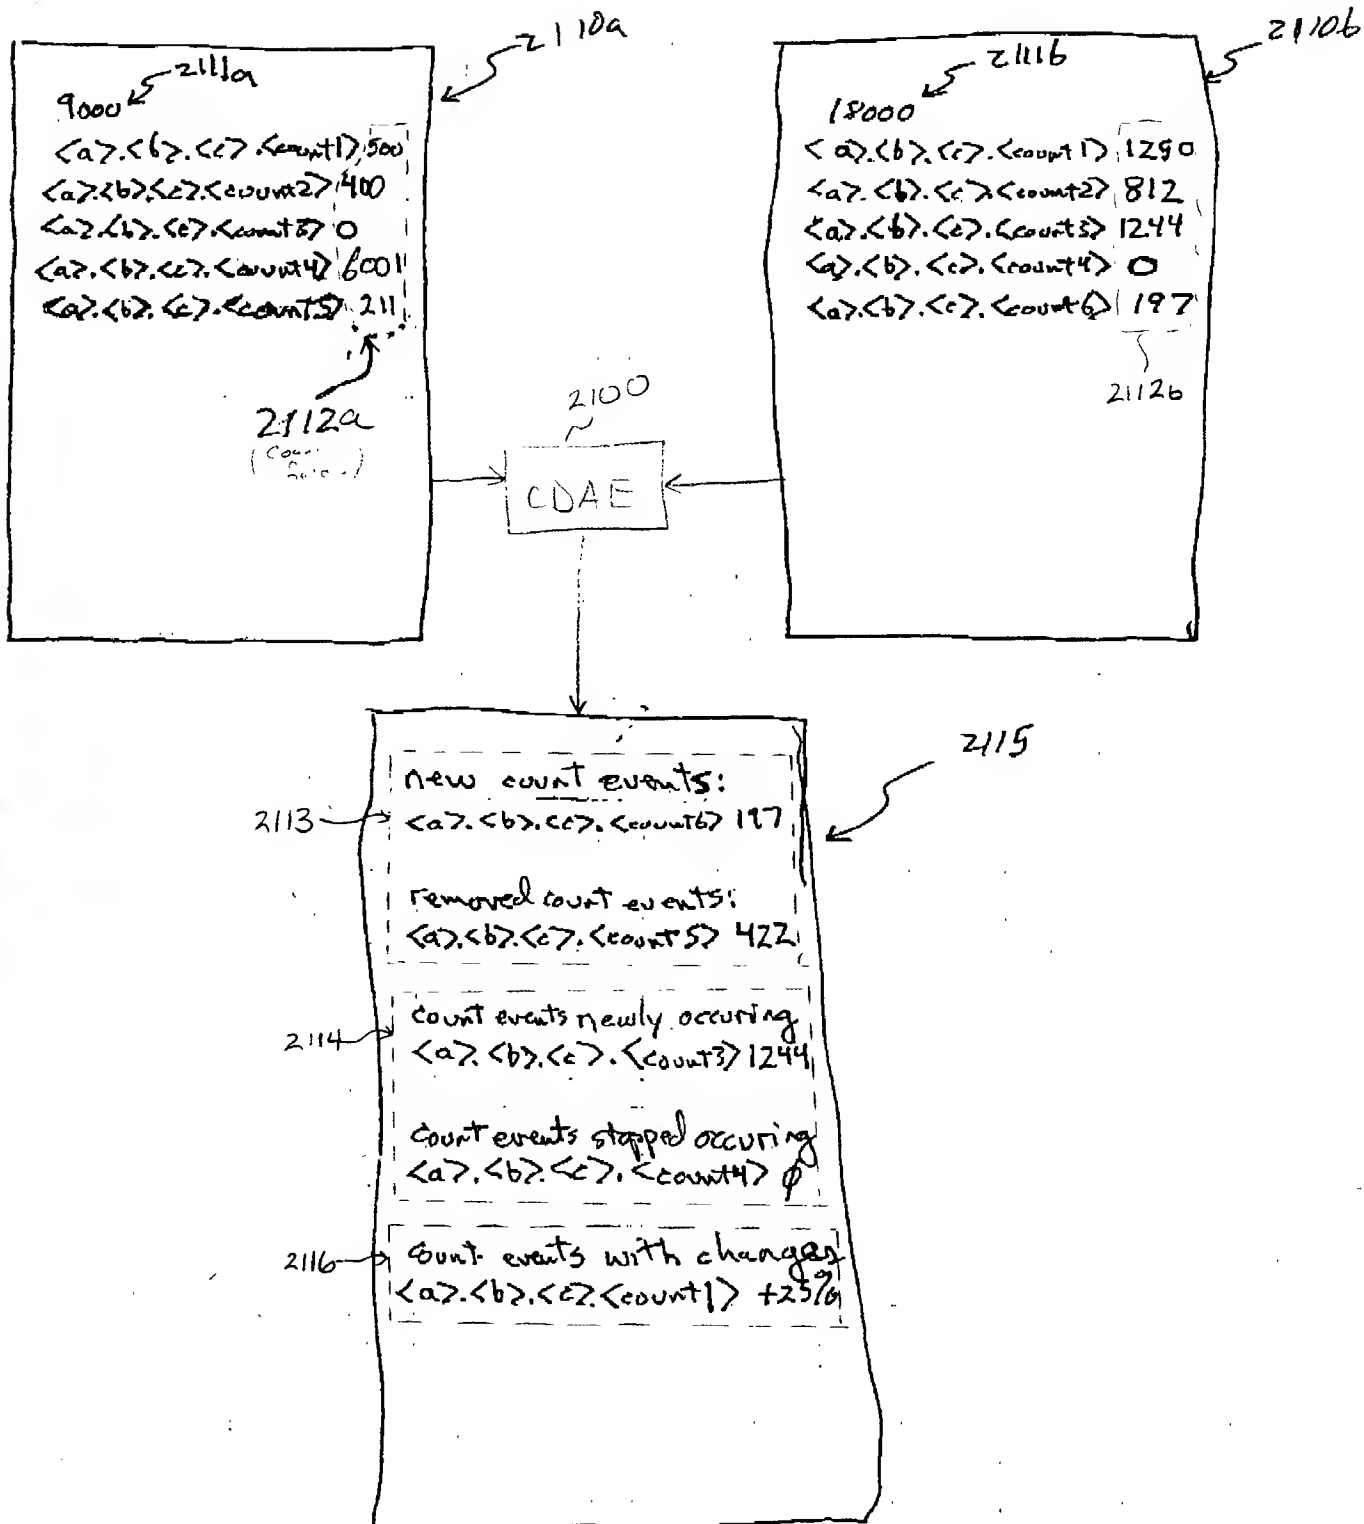 2110a
2111a
9000
<a>.<b>.<c>.<count1> 500
<a>.<b>.<c>.<count2> 400
<a>.<b>.<c>.<count3> 0
<a>.<b>.<c>.<count4> 6001
<a>.<b>.<c>.<count5> 211
2112a
2110b
2111b
18000
<a>.<b>.<c>.<count1> 1250
<a>.<b>.<c>.<count2> 812
<a>.<b>.<c>.<count3> 1244
<a>.<b>.<c>.<count4> 0
<a>.<b>.<c>.<count6> 197
2112b
2100
CDAE
2115
2113
new count events:
<a>.<b>.<c>.<count6> 197
removed count events:
<a>.<b>.<c>.<count5> 422
2114
count events newly occuring
<a>.<b>.<c>.<count3> 1244
count events stopped occuring
<a>.<b>.<c>.<count4> 0
2116
count events with changes
<a>.<b>.<c>.<count1> +25%